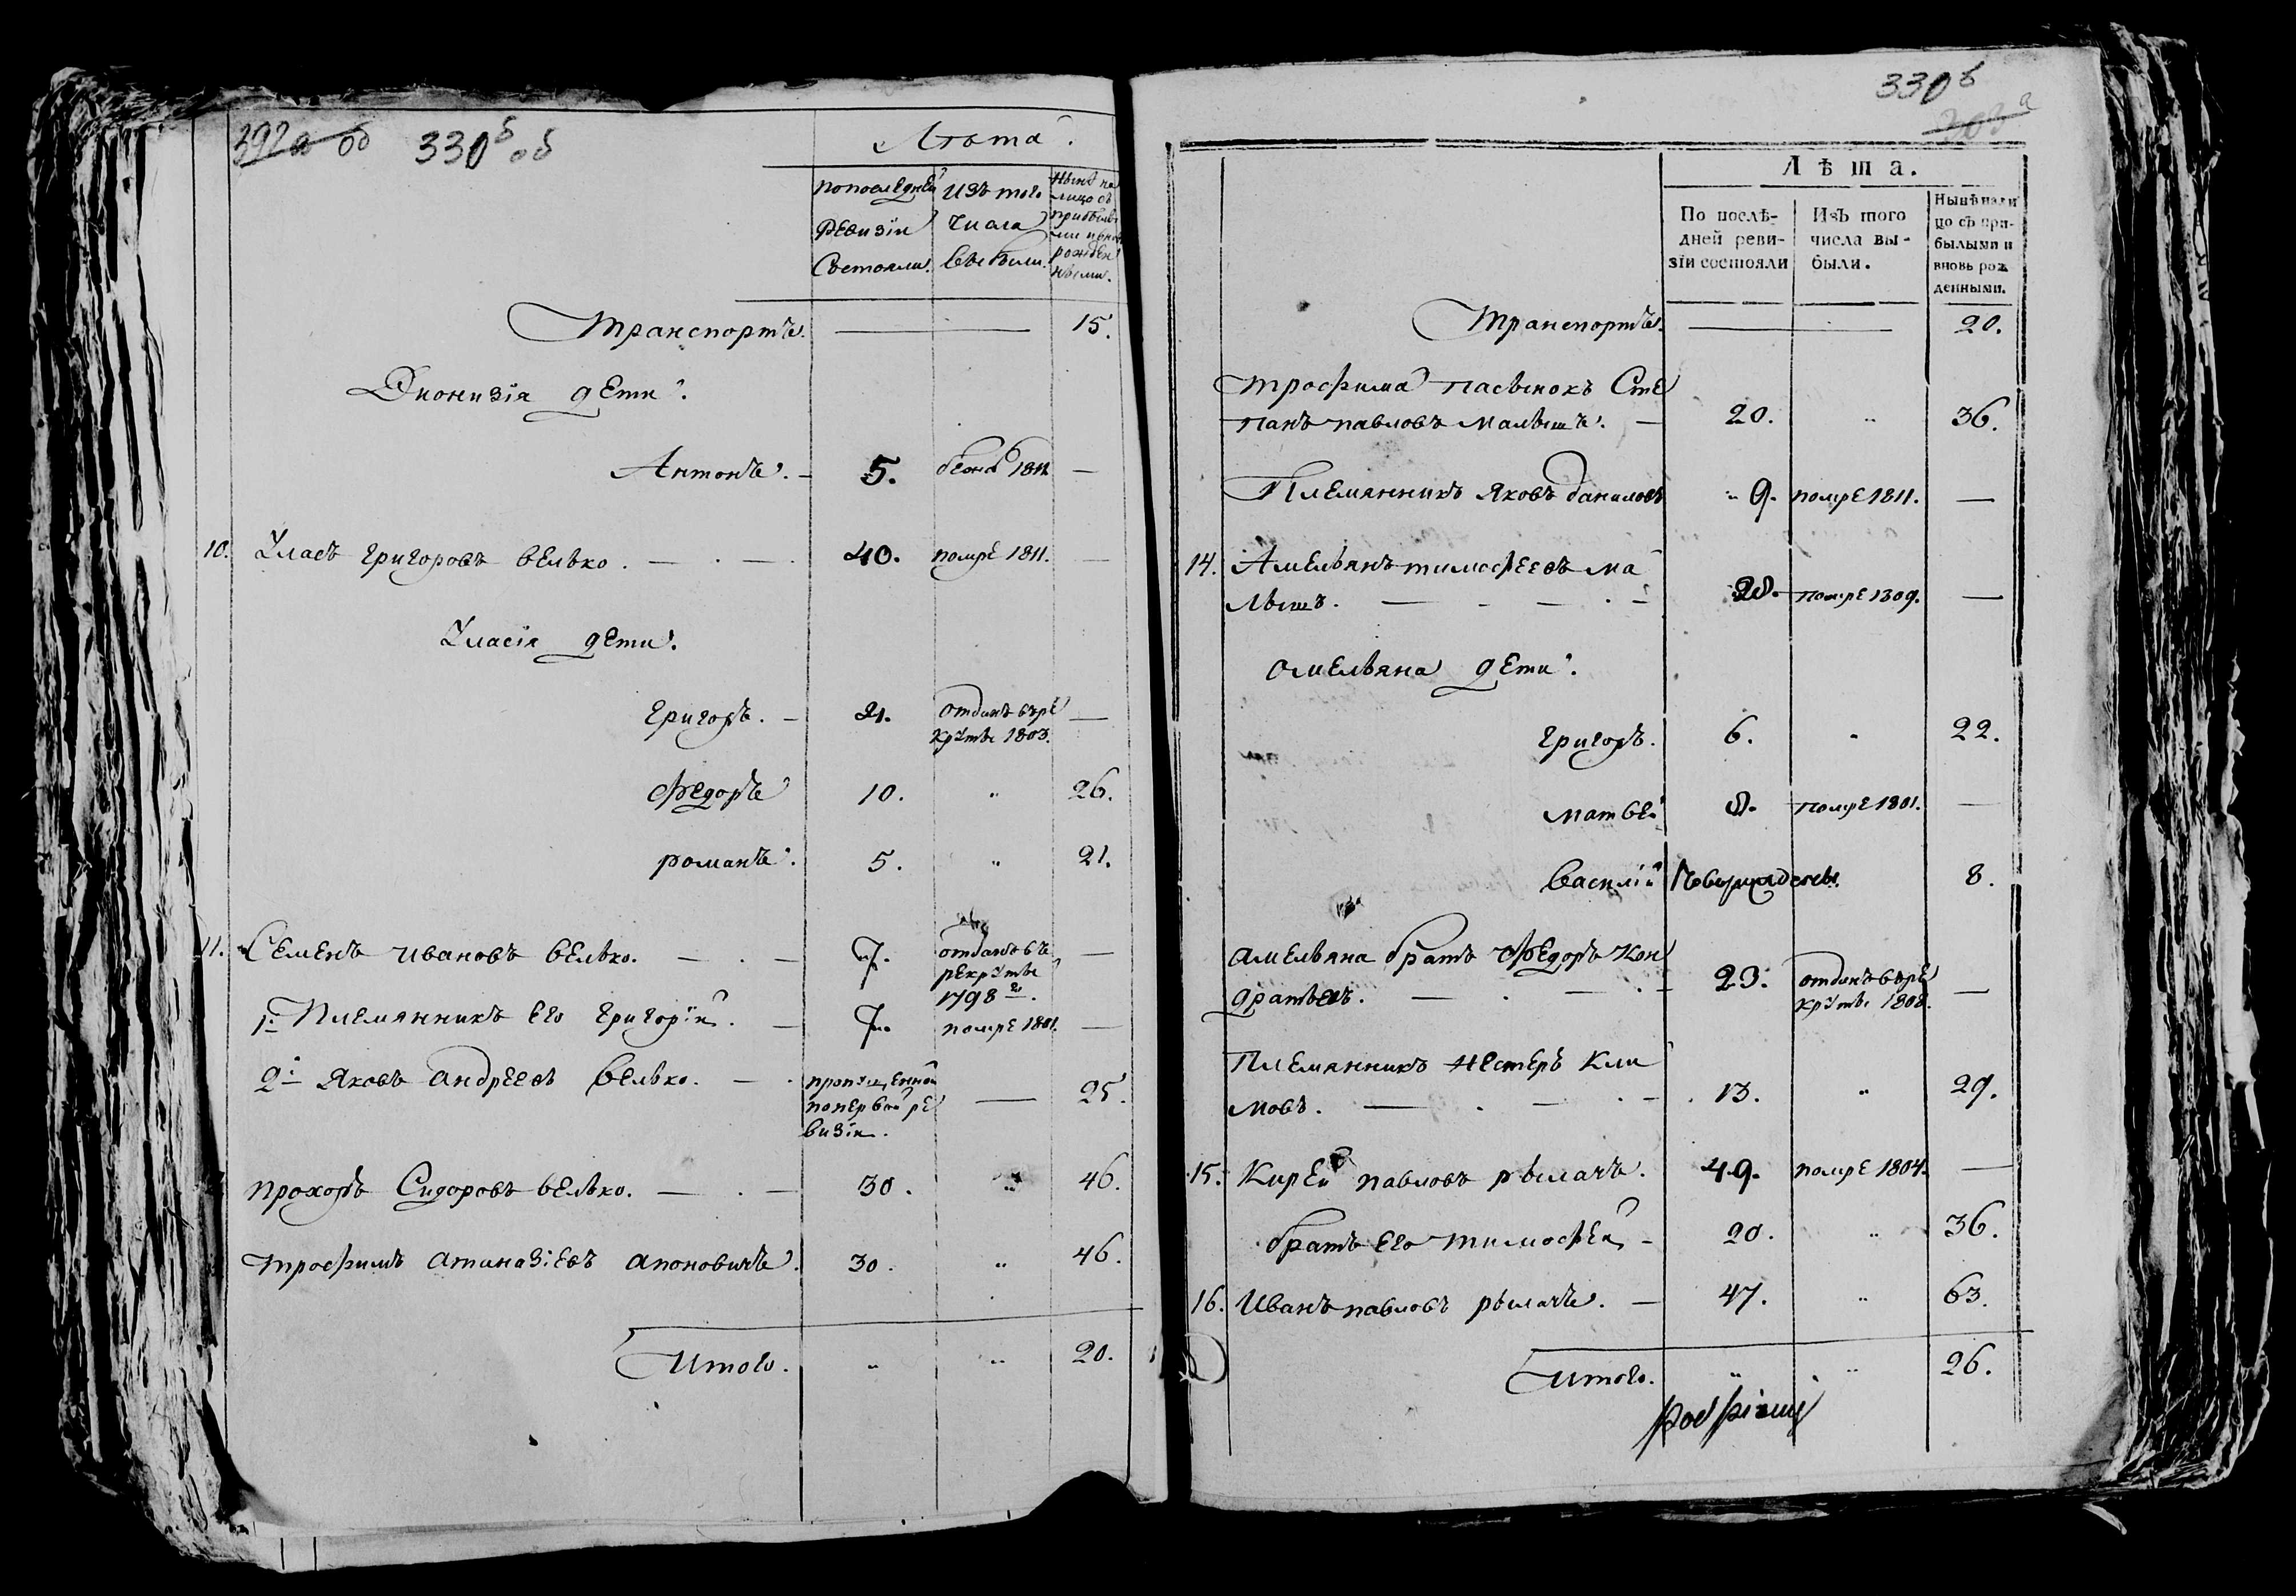 392а об 330б об
Лѣта.
По последней Ревизіи Состояли.
Изъ того Числа выбыли.
Нынѣ на лицо съ прибылыми и вновь рожденными.
Транспортъ. — — 15.
Дионизія дети.
Антонъ. — 5. бежа 1811 —
10. Уласъ Григоровъ Велько. — 40. помре 1811. —
Уласія дети.
Григоръ. — 21. отданъ въ ре
круты 1803. —
Федоръ 10. „ 26.
романъ. 5. „ 21.
11. Семенъ Ивановъ Велько. — 7. отданъ въ —
рекруты
1798 го.
1й Племянникъ Его Григорій. — 7. помре 1801. —
2й Яковъ Андреевъ Велько. — пропущенной — 25.
по первой ре
визіи.
Прохоръ Сидоровъ Велько. — 30. „ 46.
Трофимъ Атаназіевъ Апоновичъ. 30. „ 46.
Итого. „ „ 20.
330б
303 а
Лѣта.
По послѣ-
дней реви-
зіи состояли
Изъ того
числа вы-
были.
Нынѣ нали
цо съ при-
былыми и
вновь рож
денными.
Транспортъ. — 20.
Трофима Пасынокъ Сте
панъ Павловъ Малышъ. — 20. „ 36.
Племянникъ Яковъ Даниловъ „ 9. помре 1811. —
14. Амельянъ Тимофеевъ Ма
лышъ. — 28. помре 1809. —
Омельяна дети.
Григоръ. 6. „ 22.
Матвей 2. помре 1801. —
Василій Новорожденны. 8.
Амельяна братъ Федоръ Кон
дратьевъ. — 23. отданъ въ ре
круты 1808. —
Племянникъ Нестеръ Кли
мовъ. — 13. „ 29.
15. Кирей Павловъ Рымачъ. 49. помре 1804. —
братъ Его Тимофей — 20. „ 36.
16. Иванъ Павловъ Рымачъ. — 47. „ 63.
Итого. „ „ 26.